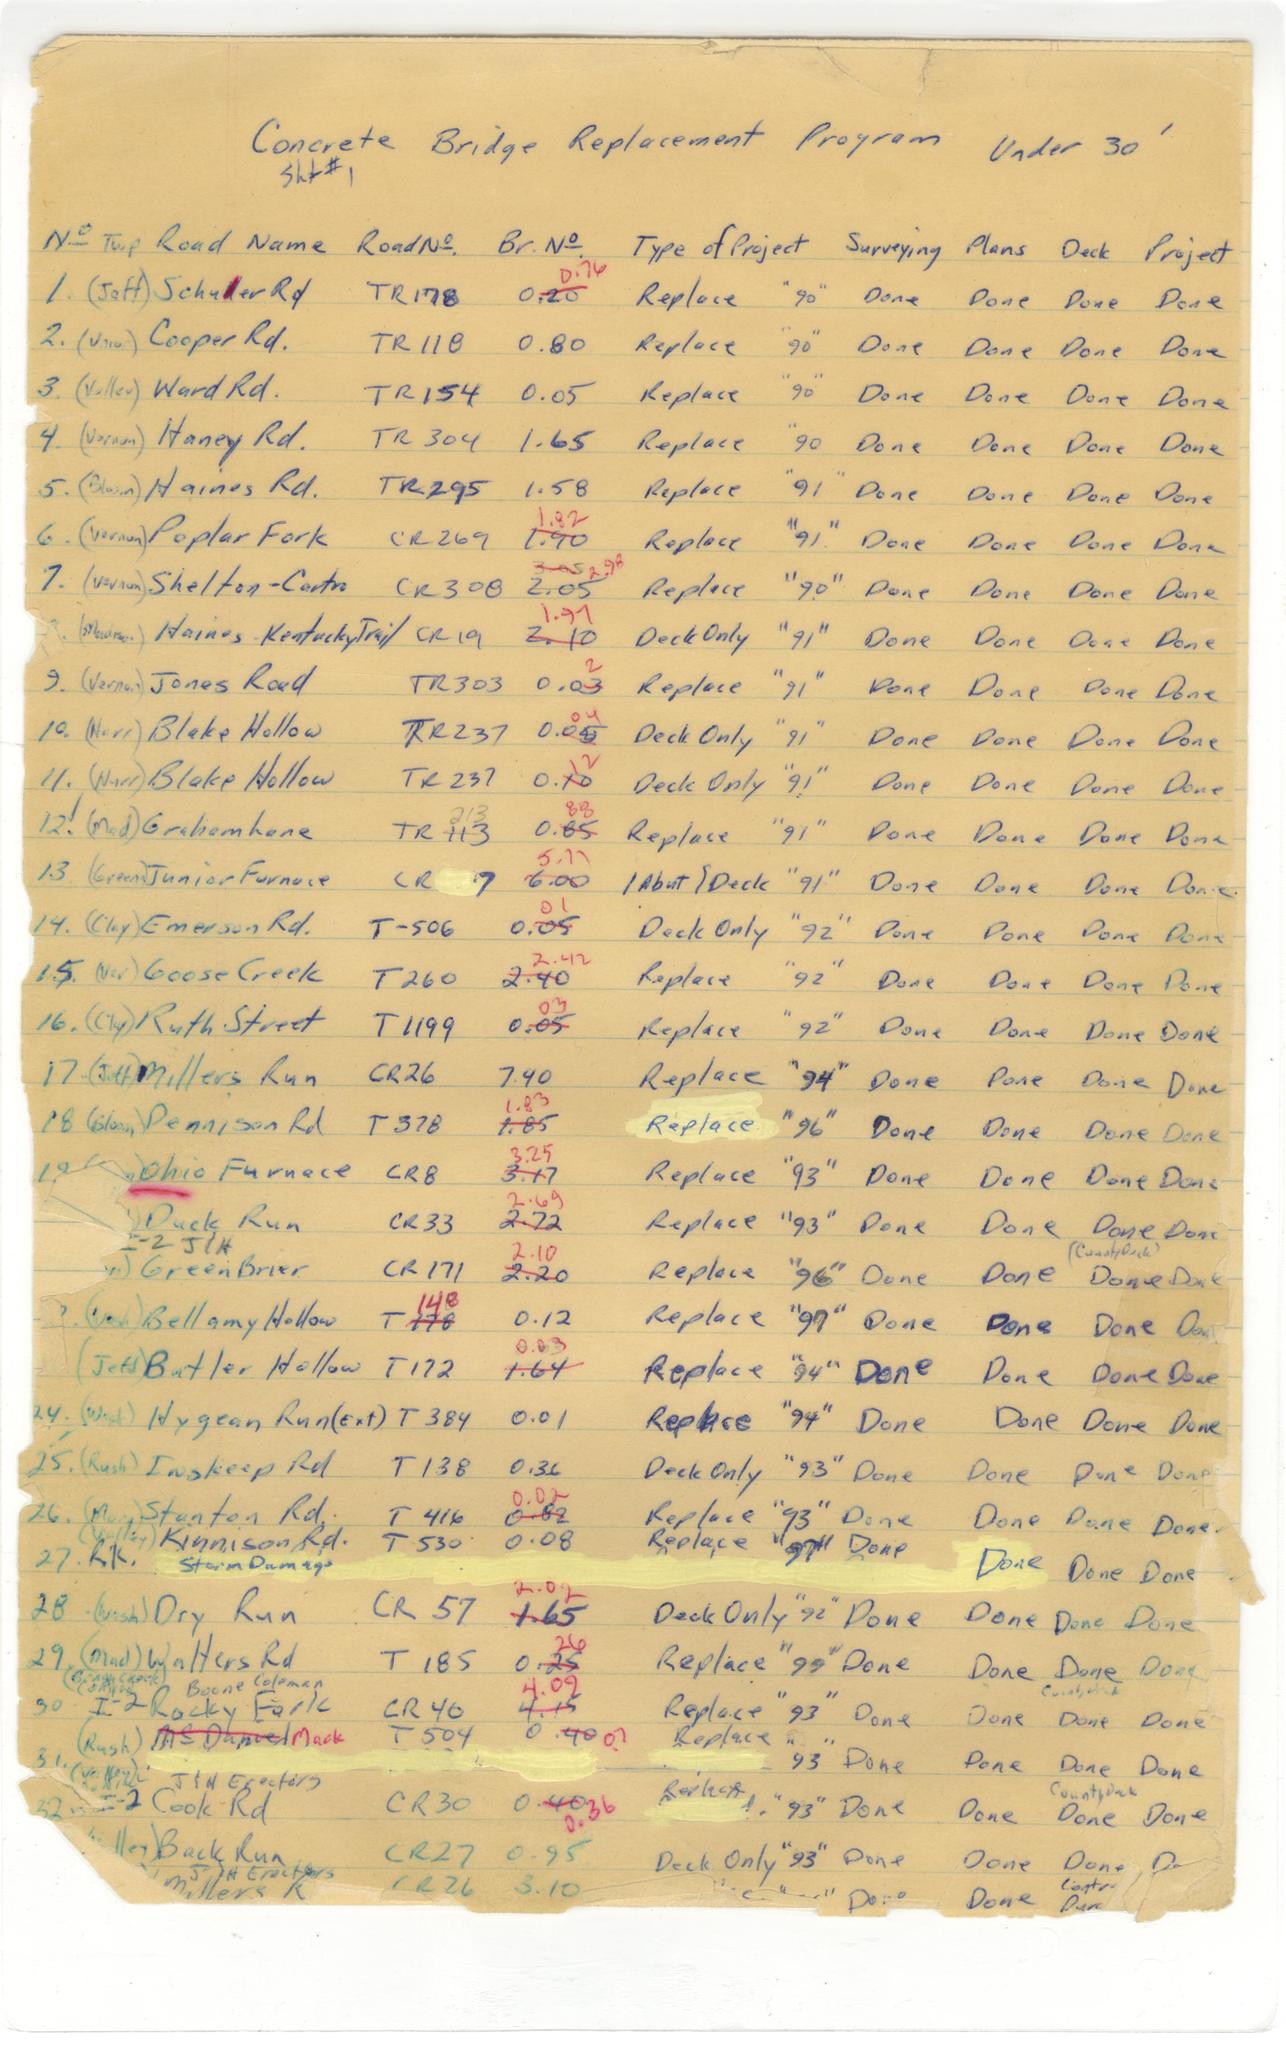 Concrete Bridge Replacement Program Under 30'
Sht #1
Nº Twp Road Name Road Nº. Br. Nº. Type of Project Surveying Plans Deck Project
1. (Jeff) Schuller Rd TR 178 0.20 0.76 Replace "90" Done Done Done Done
2. (Union) Cooper Rd. TR 118 0.80 Replace "90" Done Done Done Done
3. (Valley) Ward Rd. TR 154 0.05 Replace "90" Done Done Done Done
4. (Vernon) Haney Rd. TR 304 1.65 Replace "90 Done Done Done Done
5. (Bloom) Haines Rd. TR 295 1.58 Replace "91" Done Done Done Done
6. (Vernon) Poplar Fork CR 269 1.90 1.82 Replace "91" Done Done Done Done
7. (Vernon) Shelton-Castro CR 308 3.05 2.05 2.98 Replace "90" Done Done Done Done
Haines-Kentucky Trail CR 19 2.10 1.97 Deck Only "91" Done Done Done Done
9. (Vernon) Jones Road TR 303 0.03 2 Replace "91" Done Done Done Done
10. (Harr) Blake Hollow TR 237 0.05 04 Deck Only "91" Done Done Done Done
11. (Harr) Blake Hollow TR 237 0.10 12 Deck Only "91" Done Done Done Done
12. (Mad) Graham Lane TR 113 213 0.85 88 Replace "91" Done Done Done Done
13. (Green) Junior Furnace CR 7 6.00 5.77 1 Abut & Deck "91" Done Done Done Done
14. (Clay) Emerson Rd. T-506 0.05 01 Deck Only "92" Done Done Done Done
15. (Ver) Goose Creek T 260 2.40 2.42 Replace "92" Done Done Done Done
16. (Cly) Ruth Street T 1199 0.05 03 Replace "92" Done Done Done Done
17. (Jeff) Millers Run CR 26 7.40 Replace "94" Done Done Done Done
18 (Bloom) Dennison Rd T 378 1.85 1.83 Replace "96" Done Done Done Done
19 Ohio Furnace CR 8 3.17 3.25 Replace "93" Done Done Done Done
Duck Run CR 33 2.72 2.69 Replace "93" Done Done Done Done
I-2 J&H (County Deck)
Green Brier CR 171 2.20 2.10 Replace "96" Done Done Done Done
(Wash) Bellamy Hollow T 178 148 0.12 Replace "97" Done Done Done Done
(Jeff) Butler Hollow T 172 1.64 0.03 Replace "94" Done Done Done Done
24. (Wash) Hygean Run (Ext) T 384 0.01 Replace "94" Done Done Done Done
25. (Rush) Inskeep Rd T 138 0.36 Deck Only "93" Done Done Done Done
26. Stanton Rd. T 416 0.82 0.02 Replace "93" Done Done Done Done
(Valley) Kinnison Rd. T 530 0.08 Replace "97" Done
27. KK. Storm Damage Done Done Done
28 (Wash) Dry Run CR 57 1.65 2.02 Deck Only "92" Done Done Done Done
29. (Mad) Walters Rd T 185 0.25 26 Replace "99" Done Done Done Done
Boone Coleman County Deck
30 I-2 Rocky Fork CR 40 4.15 4.09 Replace "93" Done Done Done Done
(Rush) McDaniel Mack T 504 0.40 07 Replace
31. "93" Done Done Done Done
(Valley) J&H Erectors County Deck
32 I-2 Cook Rd CR 30 0.40 0.36 Replace "93" Done Done Done Done
Back Run CR 27 0.95 Deck Only "93" Done Done Done
J&H Erectors
Millers R CR 26 3.10 Done Done